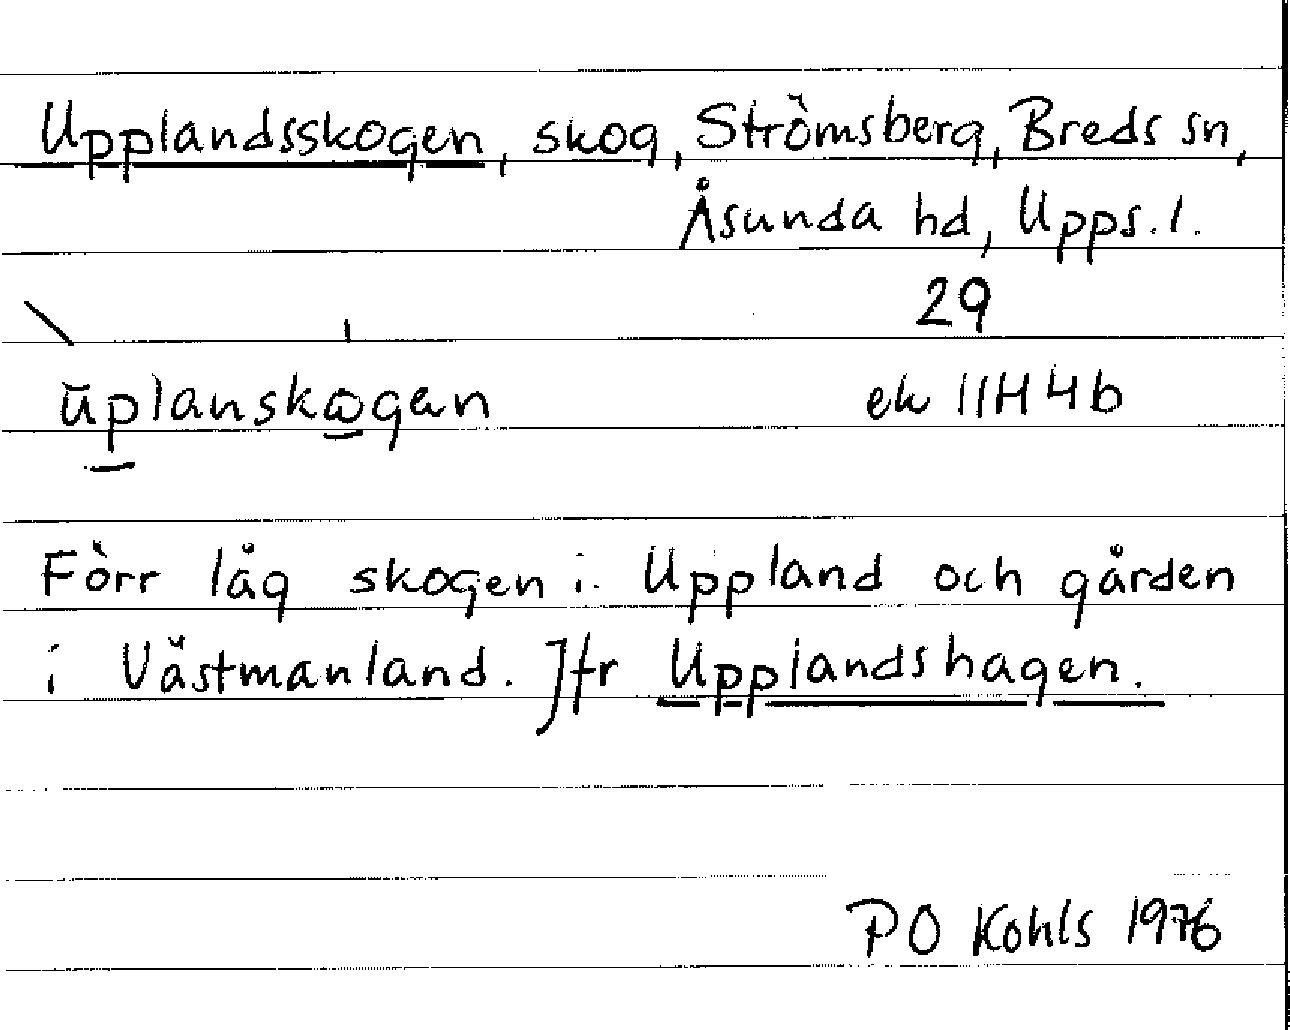 Upplandsskogen, skog, Strömsberg, Breds sn,
Åsunda hd, Upps. l.
29
ŭplanskogen ek 11H4b
Förr låg skogen i Uppland och gården
i Västmanland. Jfr Upplandshagen.
PO Kohls 1976